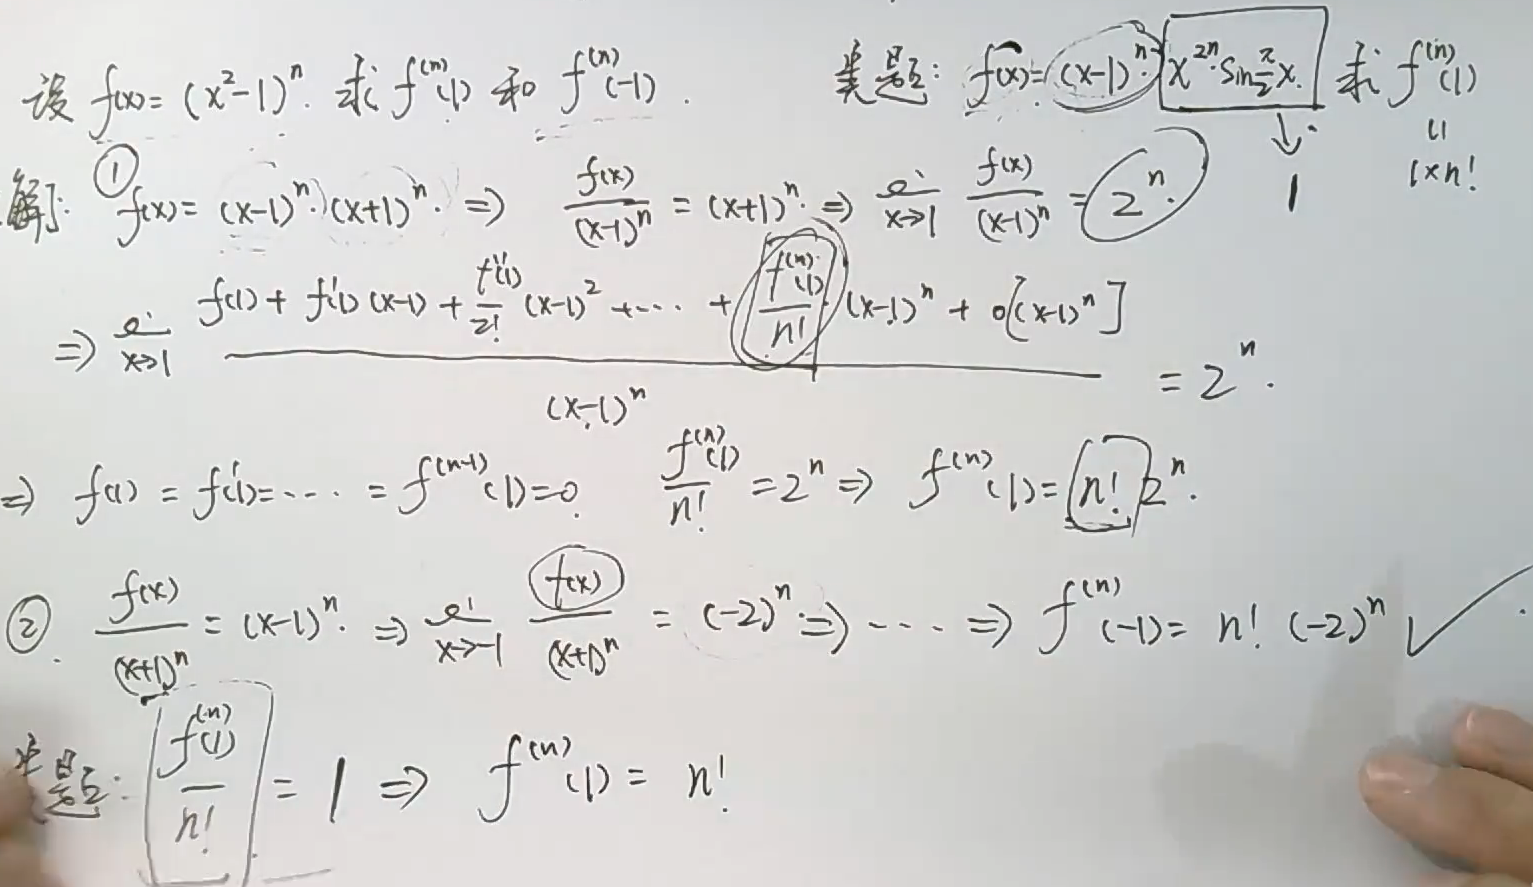 设 f(x)=(x²-1)ⁿ. 求 f⁽ⁿ⁾(1) 和 f⁽ⁿ⁾(-1).
类题: f(x)=(x-1)ⁿ·x²ⁿ·sin π/2 x. 求 f⁽ⁿ⁾(1)
↓ 1
|| 1×n!
解: ① f(x)=(x-1)ⁿ·(x+1)ⁿ. ⇒ f(x)/(x-1)ⁿ = (x+1)ⁿ. ⇒ lim x→1 f(x)/(x-1)ⁿ = 2ⁿ.
⇒ lim x→1 [f(1)+f'(1)(x-1)+f''(1)/2!(x-1)²+····+f⁽ⁿ⁾(1)/n!·(x-1)ⁿ+o[(x-1)ⁿ]]/(x-1)ⁿ = 2ⁿ.
⇒ f(1)=f'(1)=····=f⁽ⁿ⁻¹⁾(1)=0. f⁽ⁿ⁾(1)/n! = 2ⁿ ⇒ f⁽ⁿ⁾(1)=n! 2ⁿ.
②. f(x)/(x+1)ⁿ = (x-1)ⁿ. ⇒ lim x→-1 f(x)/(x+1)ⁿ = (-2)ⁿ. ⇒ ···· ⇒ f⁽ⁿ⁾(-1)= n! (-2)ⁿ ✓
类题: f⁽ⁿ⁾(1)/n! = 1 ⇒ f⁽ⁿ⁾(1) = n!